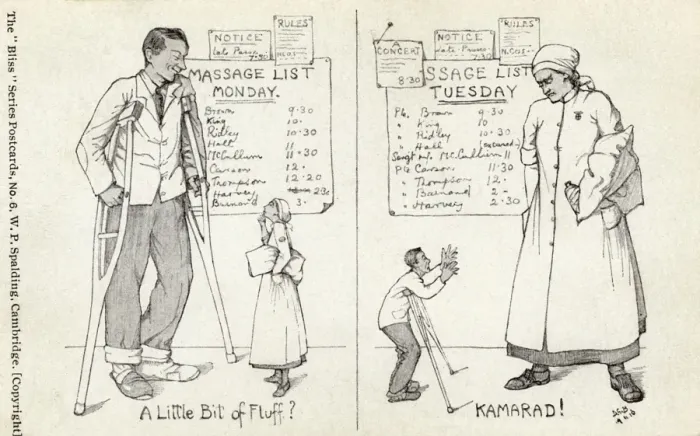 The "Bliss" Series Postcards, No. 6. W. P. Spalding, Cambridge. [Copyright]
NOTICE
Late Passes
7.30
RULES
MASSAGE LIST
MONDAY.
Brown 9.30
King 10.
Ridley 10.30
Hall 11
McCullum 11.30
Carson 12.
Thompson 12.20
Harvey 2.30
Barnard 3.
A Little Bit of Fluff?
A
CONCERT
8.30
NOTICE
Late Passes
7.30
RULES
N.C.OS
SSAGE LIST
TUESDAY
Pte. Brown 9.30
" King 10
" Ridley 10.30
" Hall (excused)
Sergt mj. McCullum 11
Pte Carson 11.30
" Thompson 12.
" Barnard 2 -
" Harvey 2.30
KAMARAD!